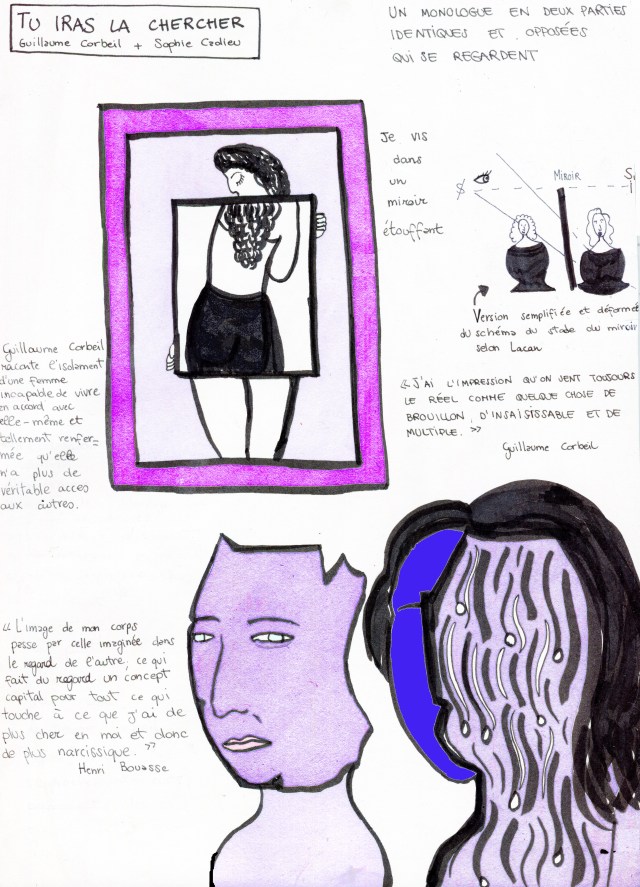 TU IRAS LA CHERCHER
Guillaume Corbeil + Sophie Cadieu
UN MONOLOGUE EN DEUX PARTIES
IDENTIQUES ET OPPOSÉES
QUI SE REGARDENT
Je vis
dans
un
miroir
étouffant
MIROIR
S
$
Version semplifiée et déformée
du schéma du stade du miroir
selon Lacan
Guillaume Corbeil
raconte l'isolement
d'une femme
incapable de vivre
en accord avec
elle-même et
tellement renfer=
mée qu'elle
n'a plus de
véritable acces
aux autres.
« J'AI L'IMPRESSION QU'ON SENT TOUJOURS
LE RÉEL COMME QUELQUE CHOSE DE
BROUILLON, D'INSAISISSABLE ET DE
MULTIPLE. »
Guillaume Corbeil
« L'image de mon corps
passe par celle imaginée dans
le regard de l'autre, ce qui
fait du regard un concept
capital pour tout ce qui
touche à ce que j'ai de
plus cher en moi et donc
de plus narcissique. »
Henri Bouasse